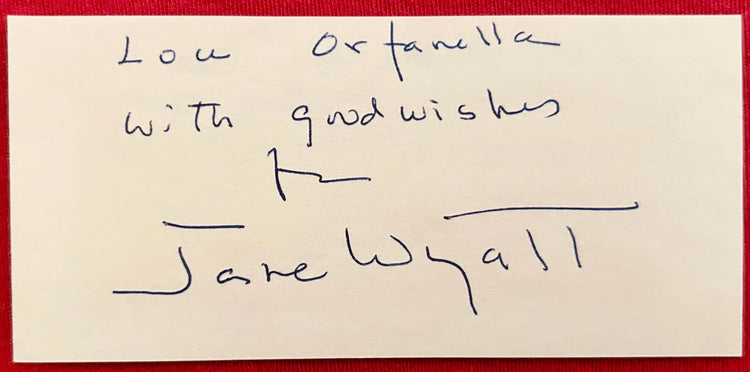 Lou Orfanella
with good wishes
fr
Jane Wyatt